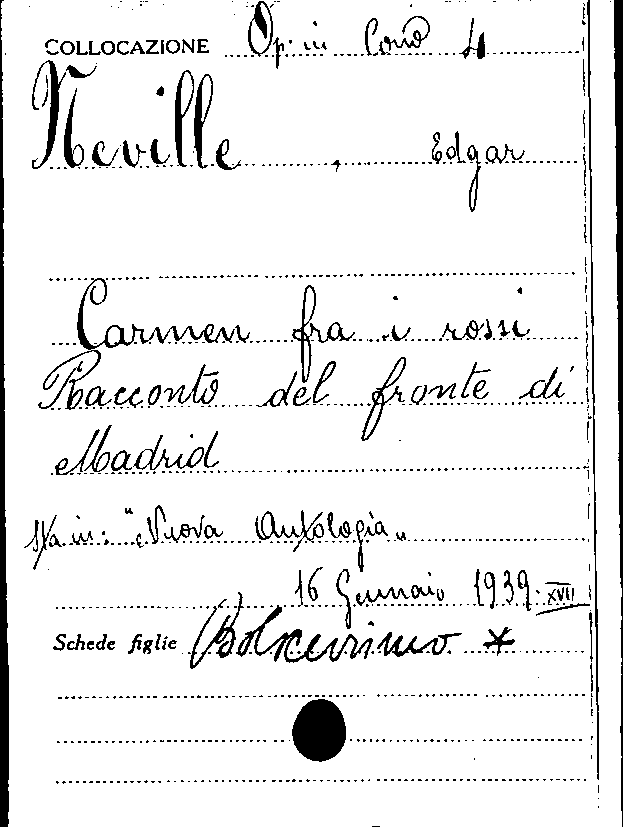 COLLOCAZIONE Op. in Cons 4
Neville, Edgar
Carmen fra i rossi
Racconto del fronte di
Madrid
sta in: "Nuova Antologia„
16 Gennaio 1939.XVII
Schede figlie Bolscevismo *